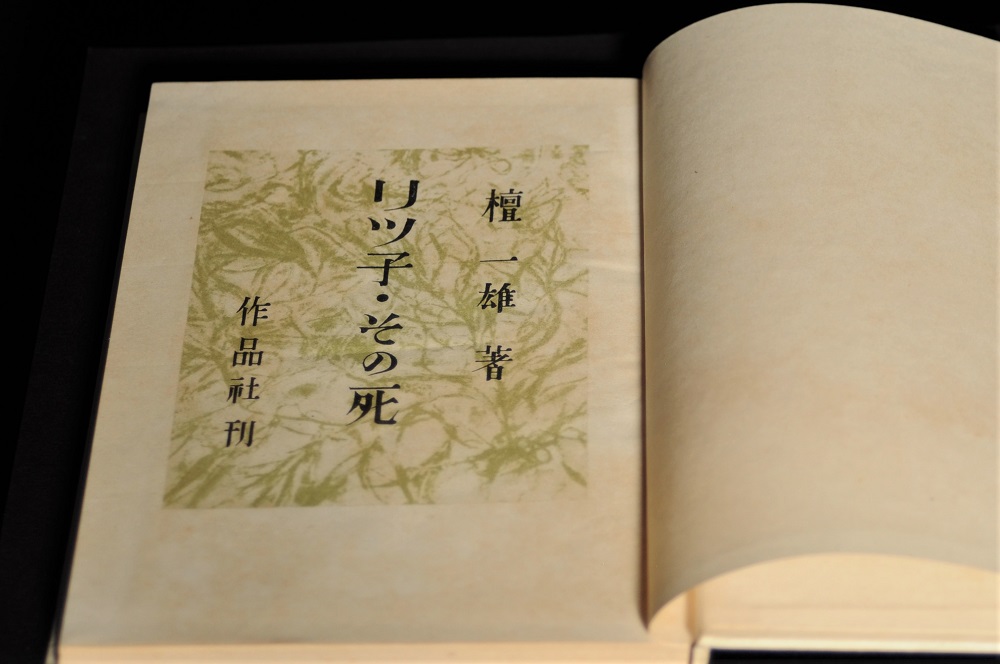 檀一雄 著
リツ子・その死
作品社刊